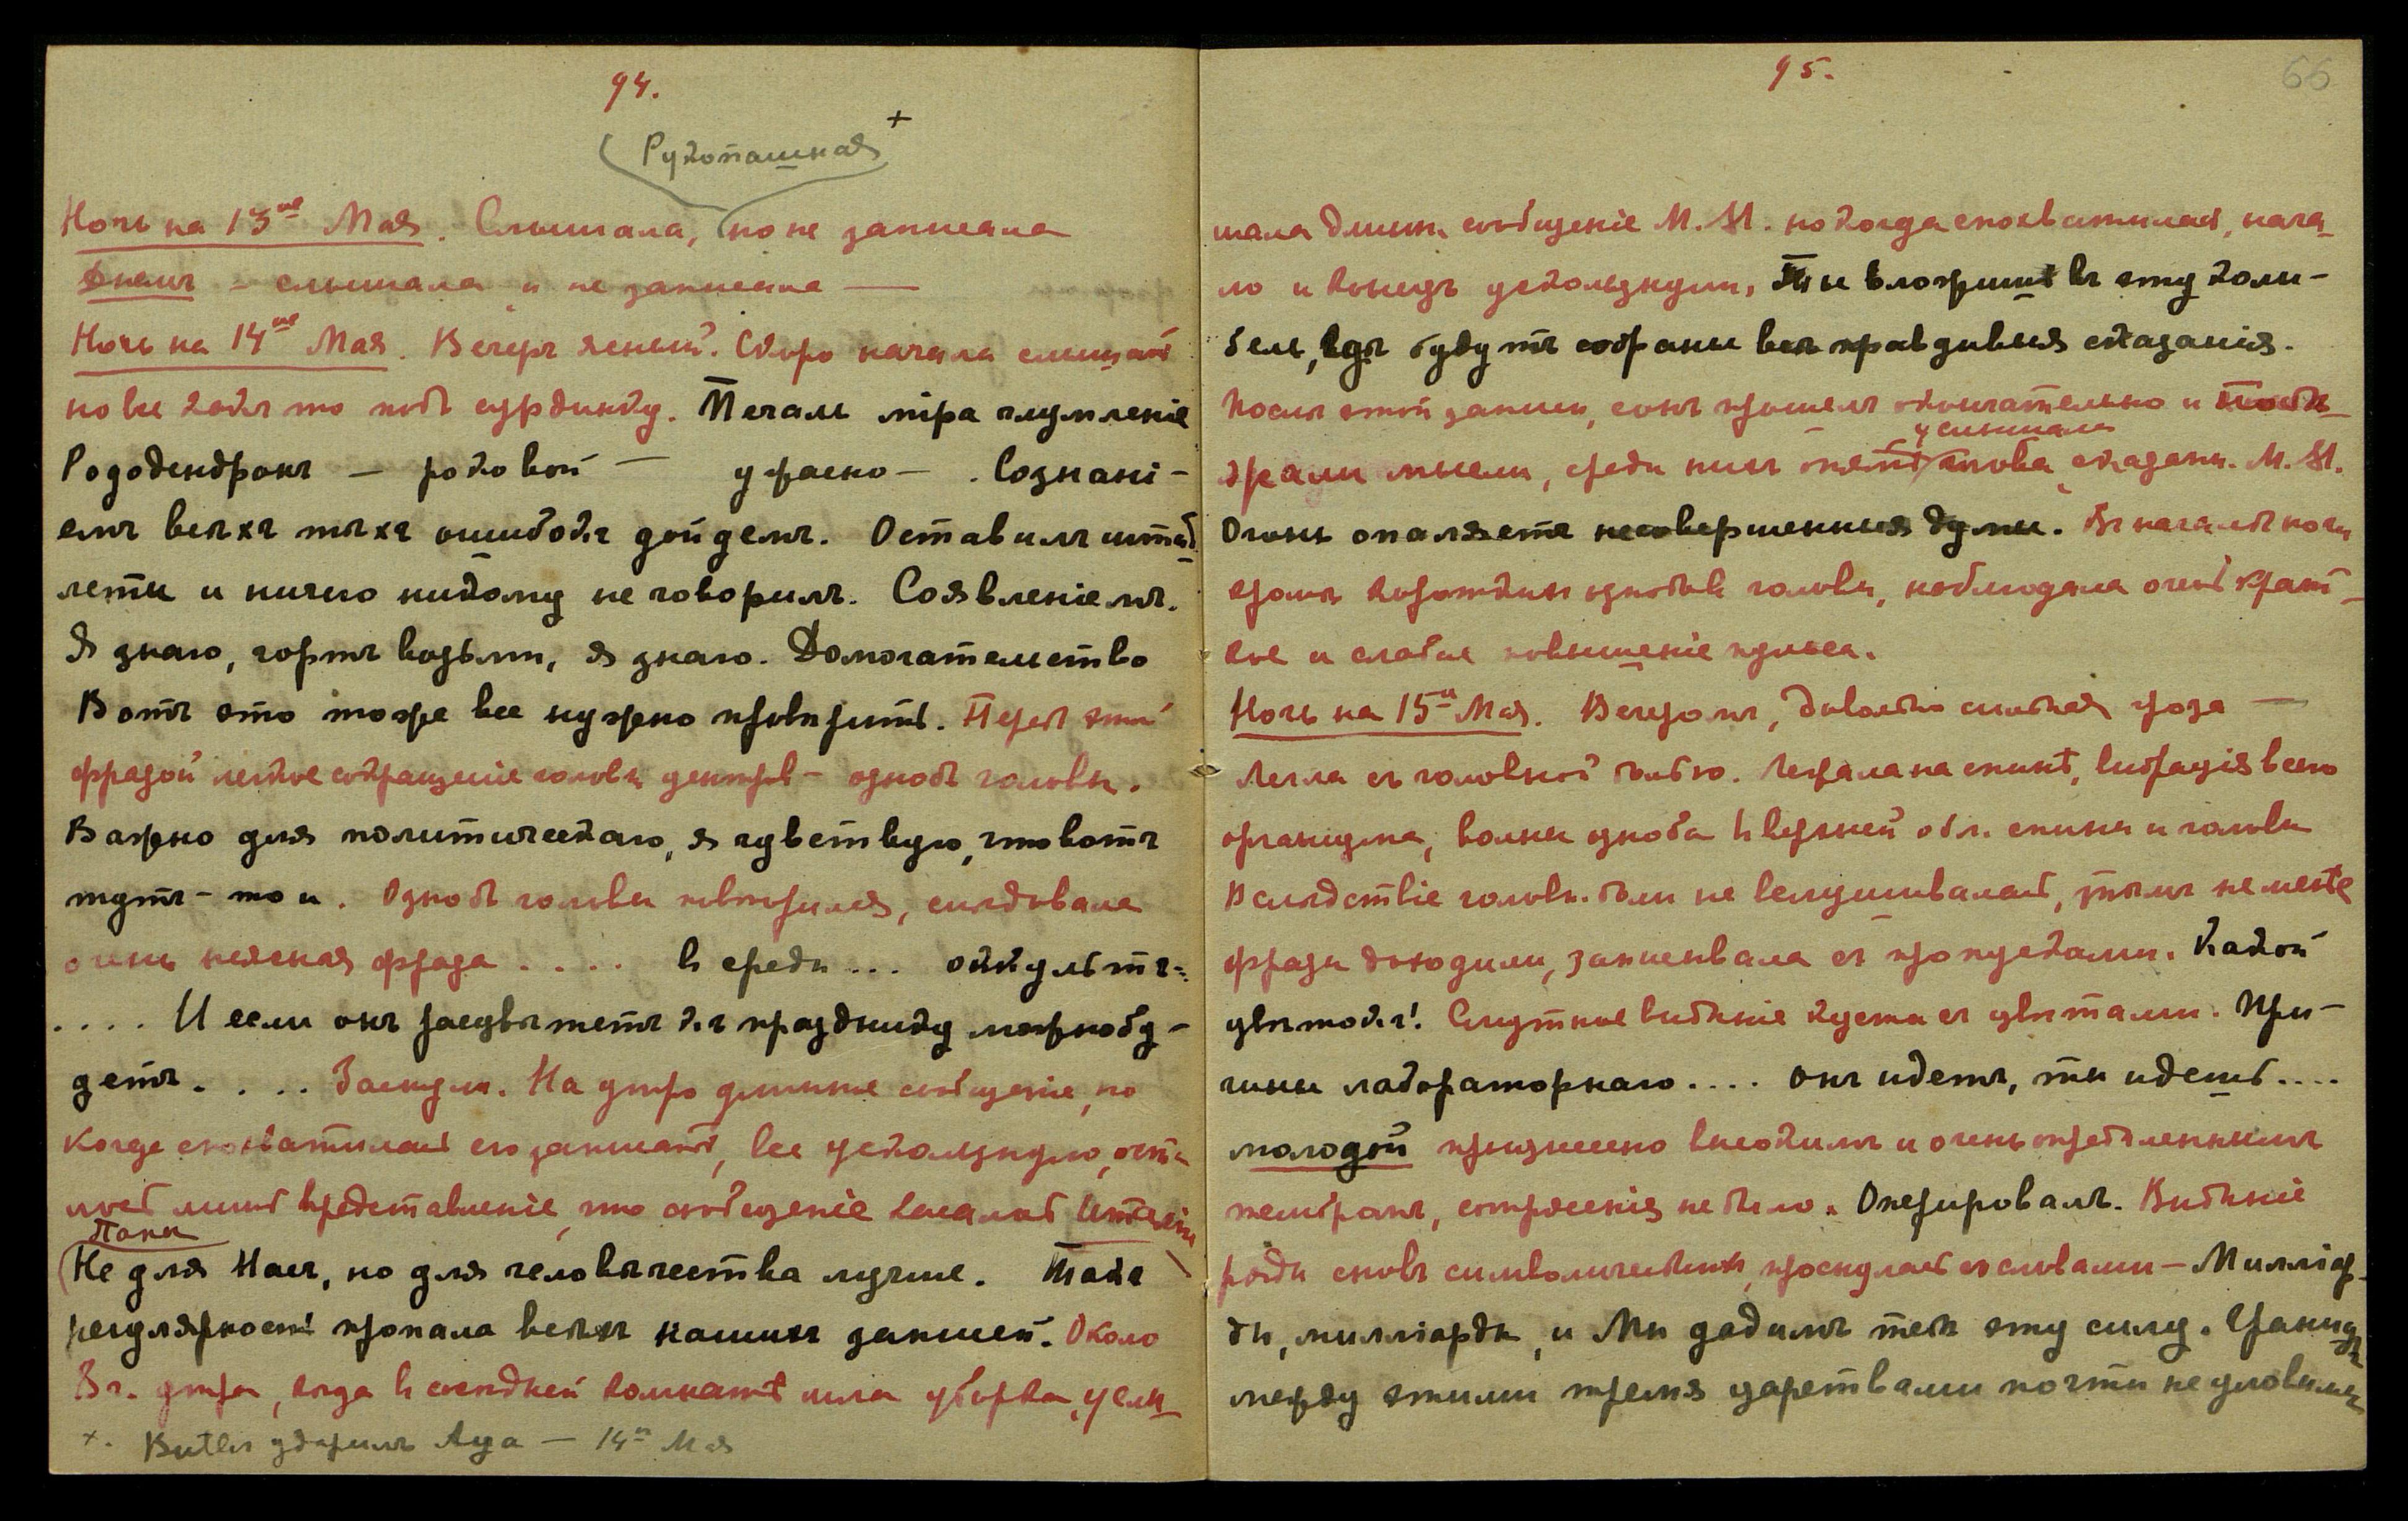 94.
Рукопашная +
Ночь на 13ое Мая. Слышала, но не записала
Днемъ – слышала и не записала —
Ночь на 14ое Мая. Вечеръ ясный. Скоро начала слышать
но все какъ то подъ сурдинку. Печаль міра глумленіе
Рододендронъ — роковой — ужасно — . Сознані-
емъ всѣхъ тѣхъ ошибокъ дойдемъ. Оставилъ
лети и ничего никому не говорилъ. Соявленіемъ.
Я знаю, чортъ возьми, я знаю. Домогательство
Вотъ это тоже все нужно провѣрить. Передъ этой
фразой легкое сокращеніе головн. центровъ – ознобъ головы.
Важно для политическаго, я чувствую, что вотъ
тутъ – то и. Ознобъ головы повторился, слѣдовала
очень неясная фраза . . . . в среды ... оккультъ-
.... И если онъ расцвѣтетъ къ празднику можно бу-
детъ. . . . Заснула. На утро длинное сообщеніе, но
когда спохватилась его записать, все ускользнуло, оста
лось лишь представленіе, что сообщеніе касалось
Папы
(Не для Насъ, но для человѣчества лучше. Такъ
регулярность пропала всѣхъ нашихъ записей. Около
8 ч. утра, когда в сосѣдней комнатѣ шла уборка, услы-
+. Butler ударилъ Aya — 14го Мая
95.
66
шала длинн. сообщеніе М. М. но когда спохватилась, нача-
ло и конецъ ускользнули. Ты вложишь въ эту колы-
бель, гдѣ будутъ собраны всѣ правдивыя сказанія.
Послѣ этой записи, сонъ прошелъ окончательно и
услышала
жали мысли, среди нихъ опять слова сказанн. М. М.
Огонь опаляетъ несовершенныя думы. Въ началѣ ночи
кромѣ короткихъ ознобовъ головы, наблюдала очень крат-
кое и слабое повышеніе пульса.
Ночь на 15ое Мая. Вечеромъ, довольно сильная гроза —
Легла съ головной болью. Лежала на спинѣ, вибрація всего
организма, волны озноба в верхней обл. спины и головы
Вслѣдствіе головн. боли не вслушивалась, тѣмъ не менѣе
фразы доходили, записывала съ пропусками. Какой
цвѣтокъ! Смутное видѣніе куста съ цвѣтами. При-
чины лабораторнаго.... Онъ идетъ, ты идешь....
молодой произнесено высокимъ и очень опредѣленнымъ
тембромъ, сотрясенія не было. Оперировалъ. Видѣніе
ряды сновъ символическихъ, проснулась со словами – Милліар-
ды, милліарды, и Мы дадимъ тебѣ эту силу. Границы
между этими тремя царствами почти не уловимы